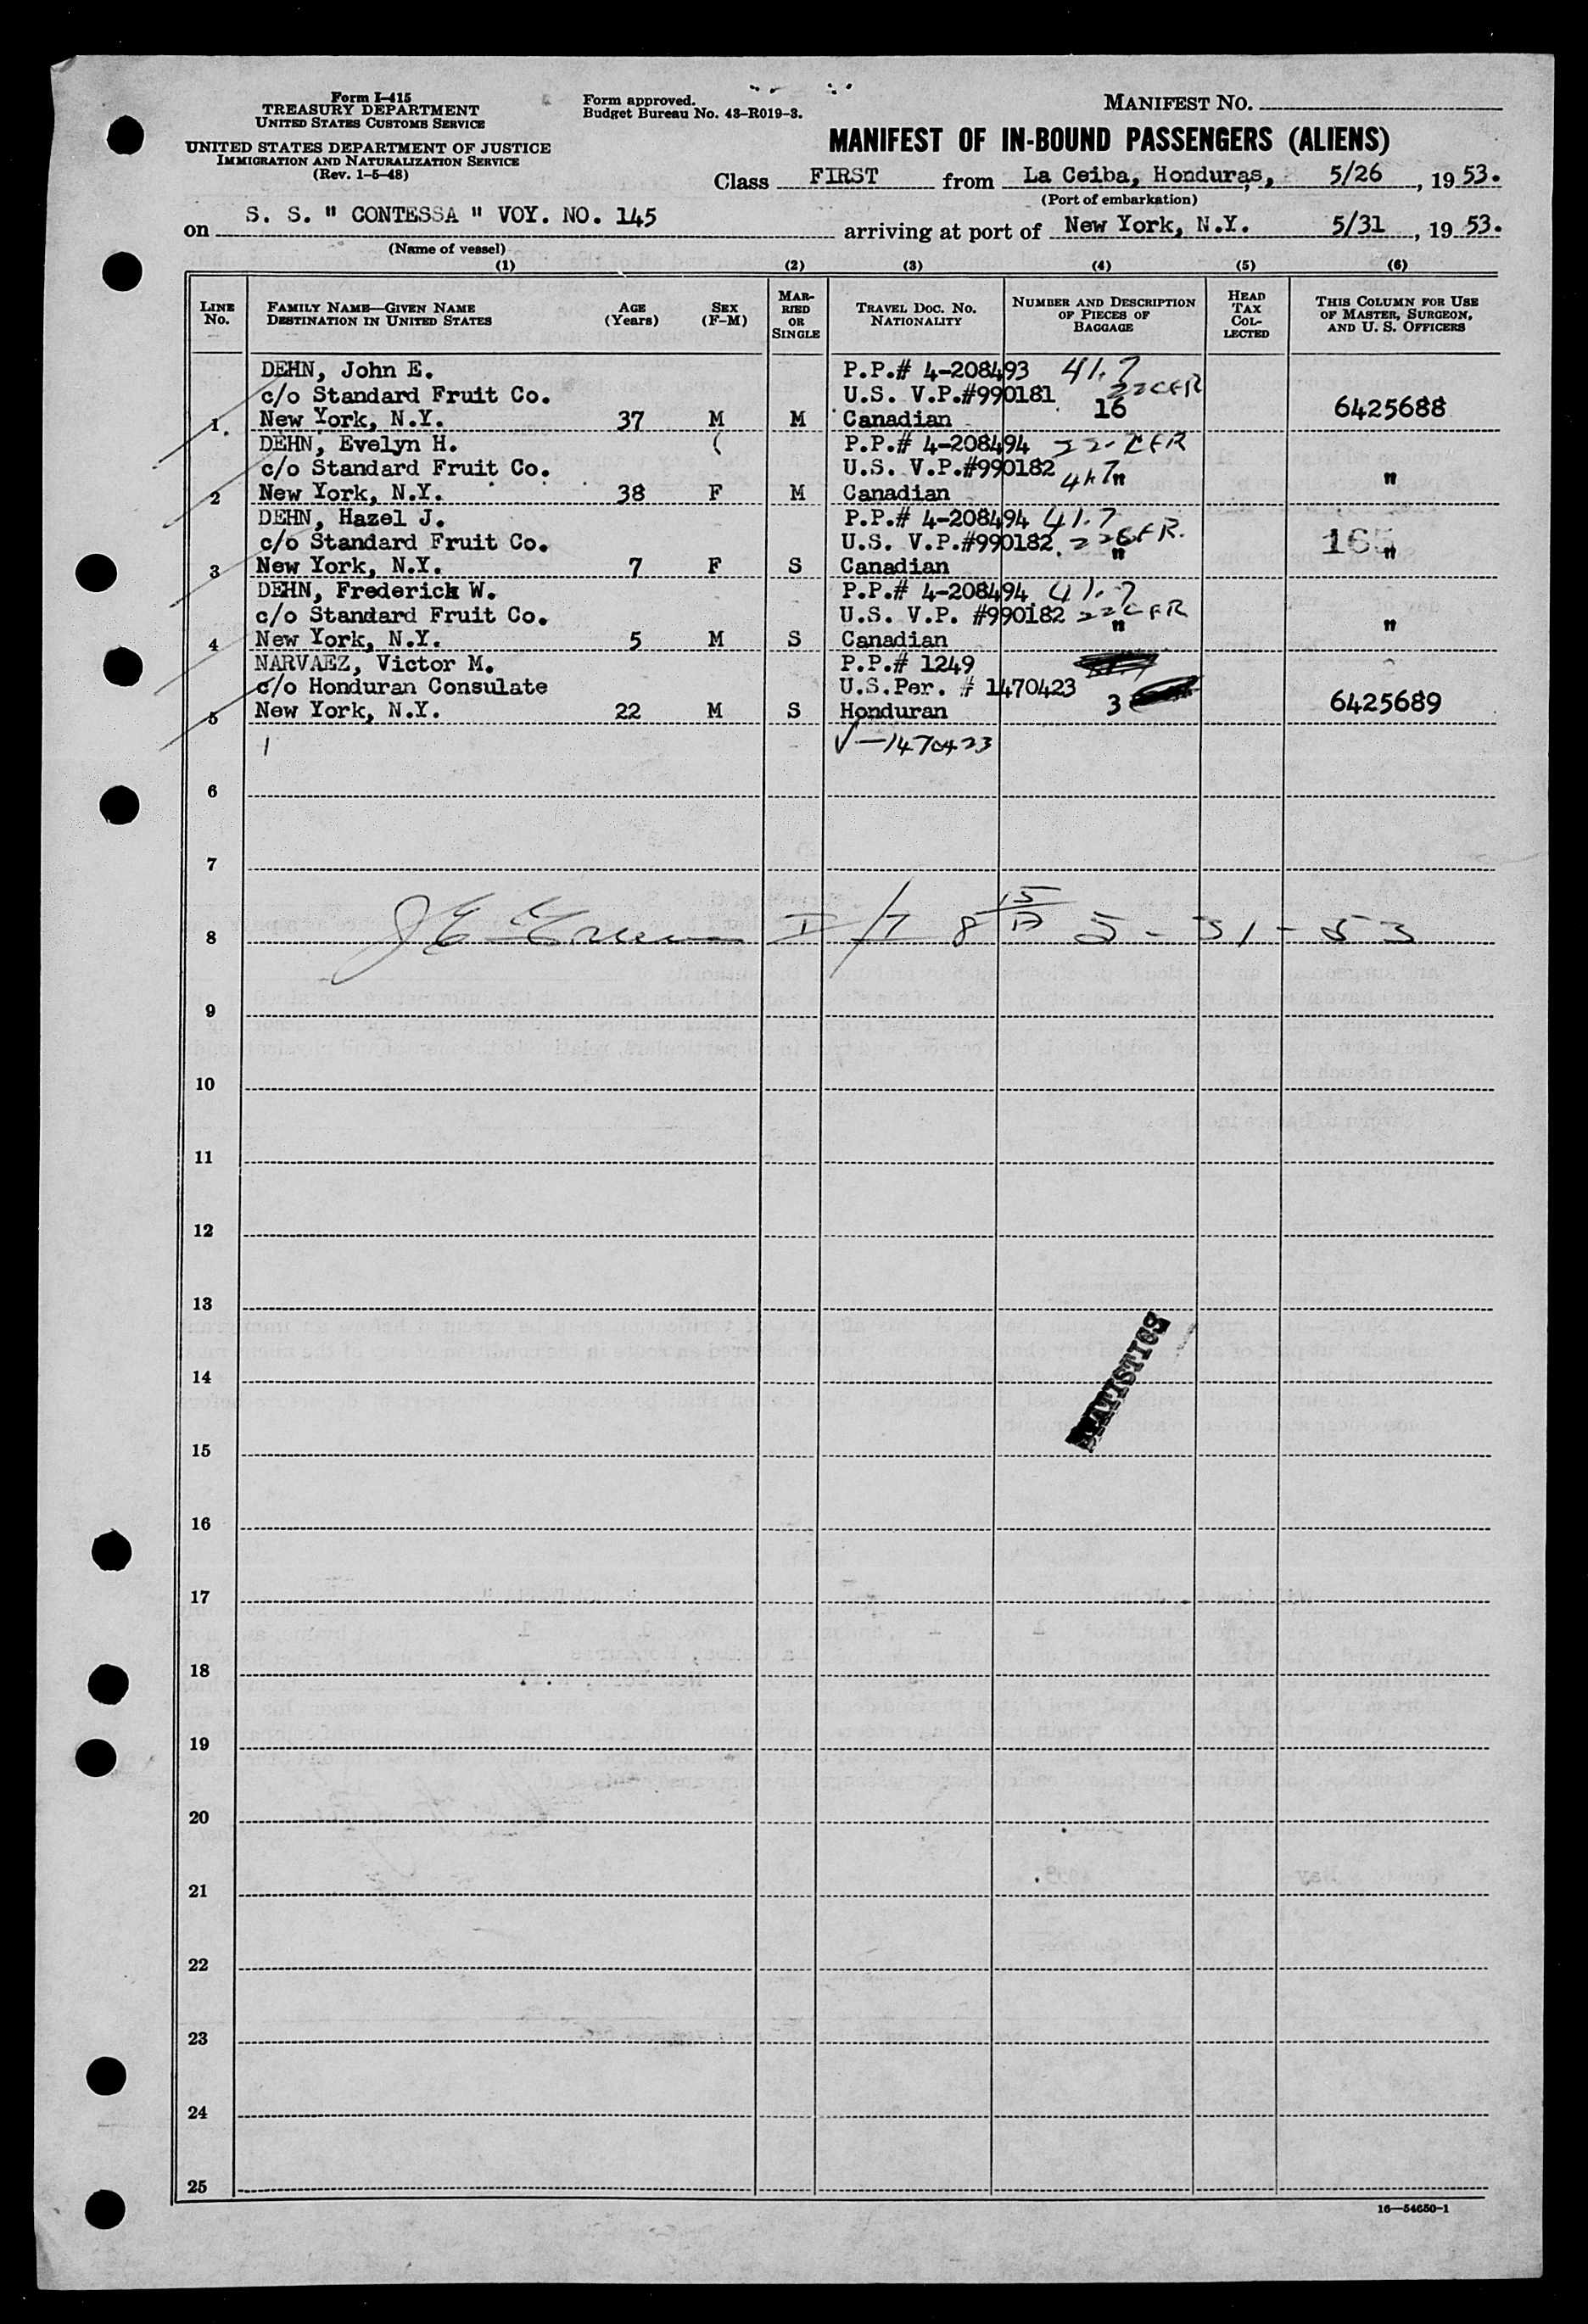 Form I-415
TREASURY DEPARTMENT
UNITED STATES CUSTOMS SERVICE
UNITED STATES DEPARTMENT OF JUSTICE
IMMIGRATION AND NATURALIZATION SERVICE
(Rev. 1-5-48)
Form approved.
Budget Bureau No. 43-R019-3.
MANIFEST NO.
MANIFEST OF IN-BOUND PASSENGERS (ALIENS)
Class FIRST from La Ceiba, Honduras, 5/26, 1953.
(Port of embarkation)
on S. S. " CONTESSA " VOY. NO. 145 arriving at port of New York, N.Y. 5/31, 1953.
(Name of vessel)
(1) (2) (3) (4) (5) (6)
LINE No. FAMILY NAME—GIVEN NAME DESTINATION IN UNITED STATES AGE (Years) SEX (F-M) MARRIED OR SINGLE TRAVEL DOC. NO. NATIONALITY NUMBER AND DESCRIPTION OF PIECES OF BAGGAGE HEAD TAX COLLECTED THIS COLUMN FOR USE OF MASTER, SURGEON, AND U. S. OFFICERS
DEHN, John E. P.P.# 4-208493 41.7
c/o Standard Fruit Co. U.S. V.P.#990181 22CFR
1 New York, N.Y. 37 M M Canadian 16 6425688
DEHN, Evelyn H. P.P.# 4-208494 22-CFR
c/o Standard Fruit Co. U.S. V.P.#990182 41.7
2 New York, N.Y. 38 F M Canadian " "
DEHN, Hazel J. P.P.# 4-208494 41.7
c/o Standard Fruit Co. U.S. V.P.#990182 22CFR. 165
3 New York, N.Y. 7 F S Canadian " "
DEHN, Frederick W. P.P.# 4-208494 41.7
c/o Standard Fruit Co. U.S. V.P. #990182 22CFR
4 New York, N.Y. 5 M S Canadian " "
NARVAEZ, Victor M. P.P.# 1249
c/o Honduran Consulate U.S.Per. # 1470423
5 New York, N.Y. 22 M S Honduran 3 6425689
✓—1470423
6
7
8 5-31-53
9
10
11
12
13
STATISTICS
14
15
16
17
18
19
20
21
22
23
24
25
16—54650-1